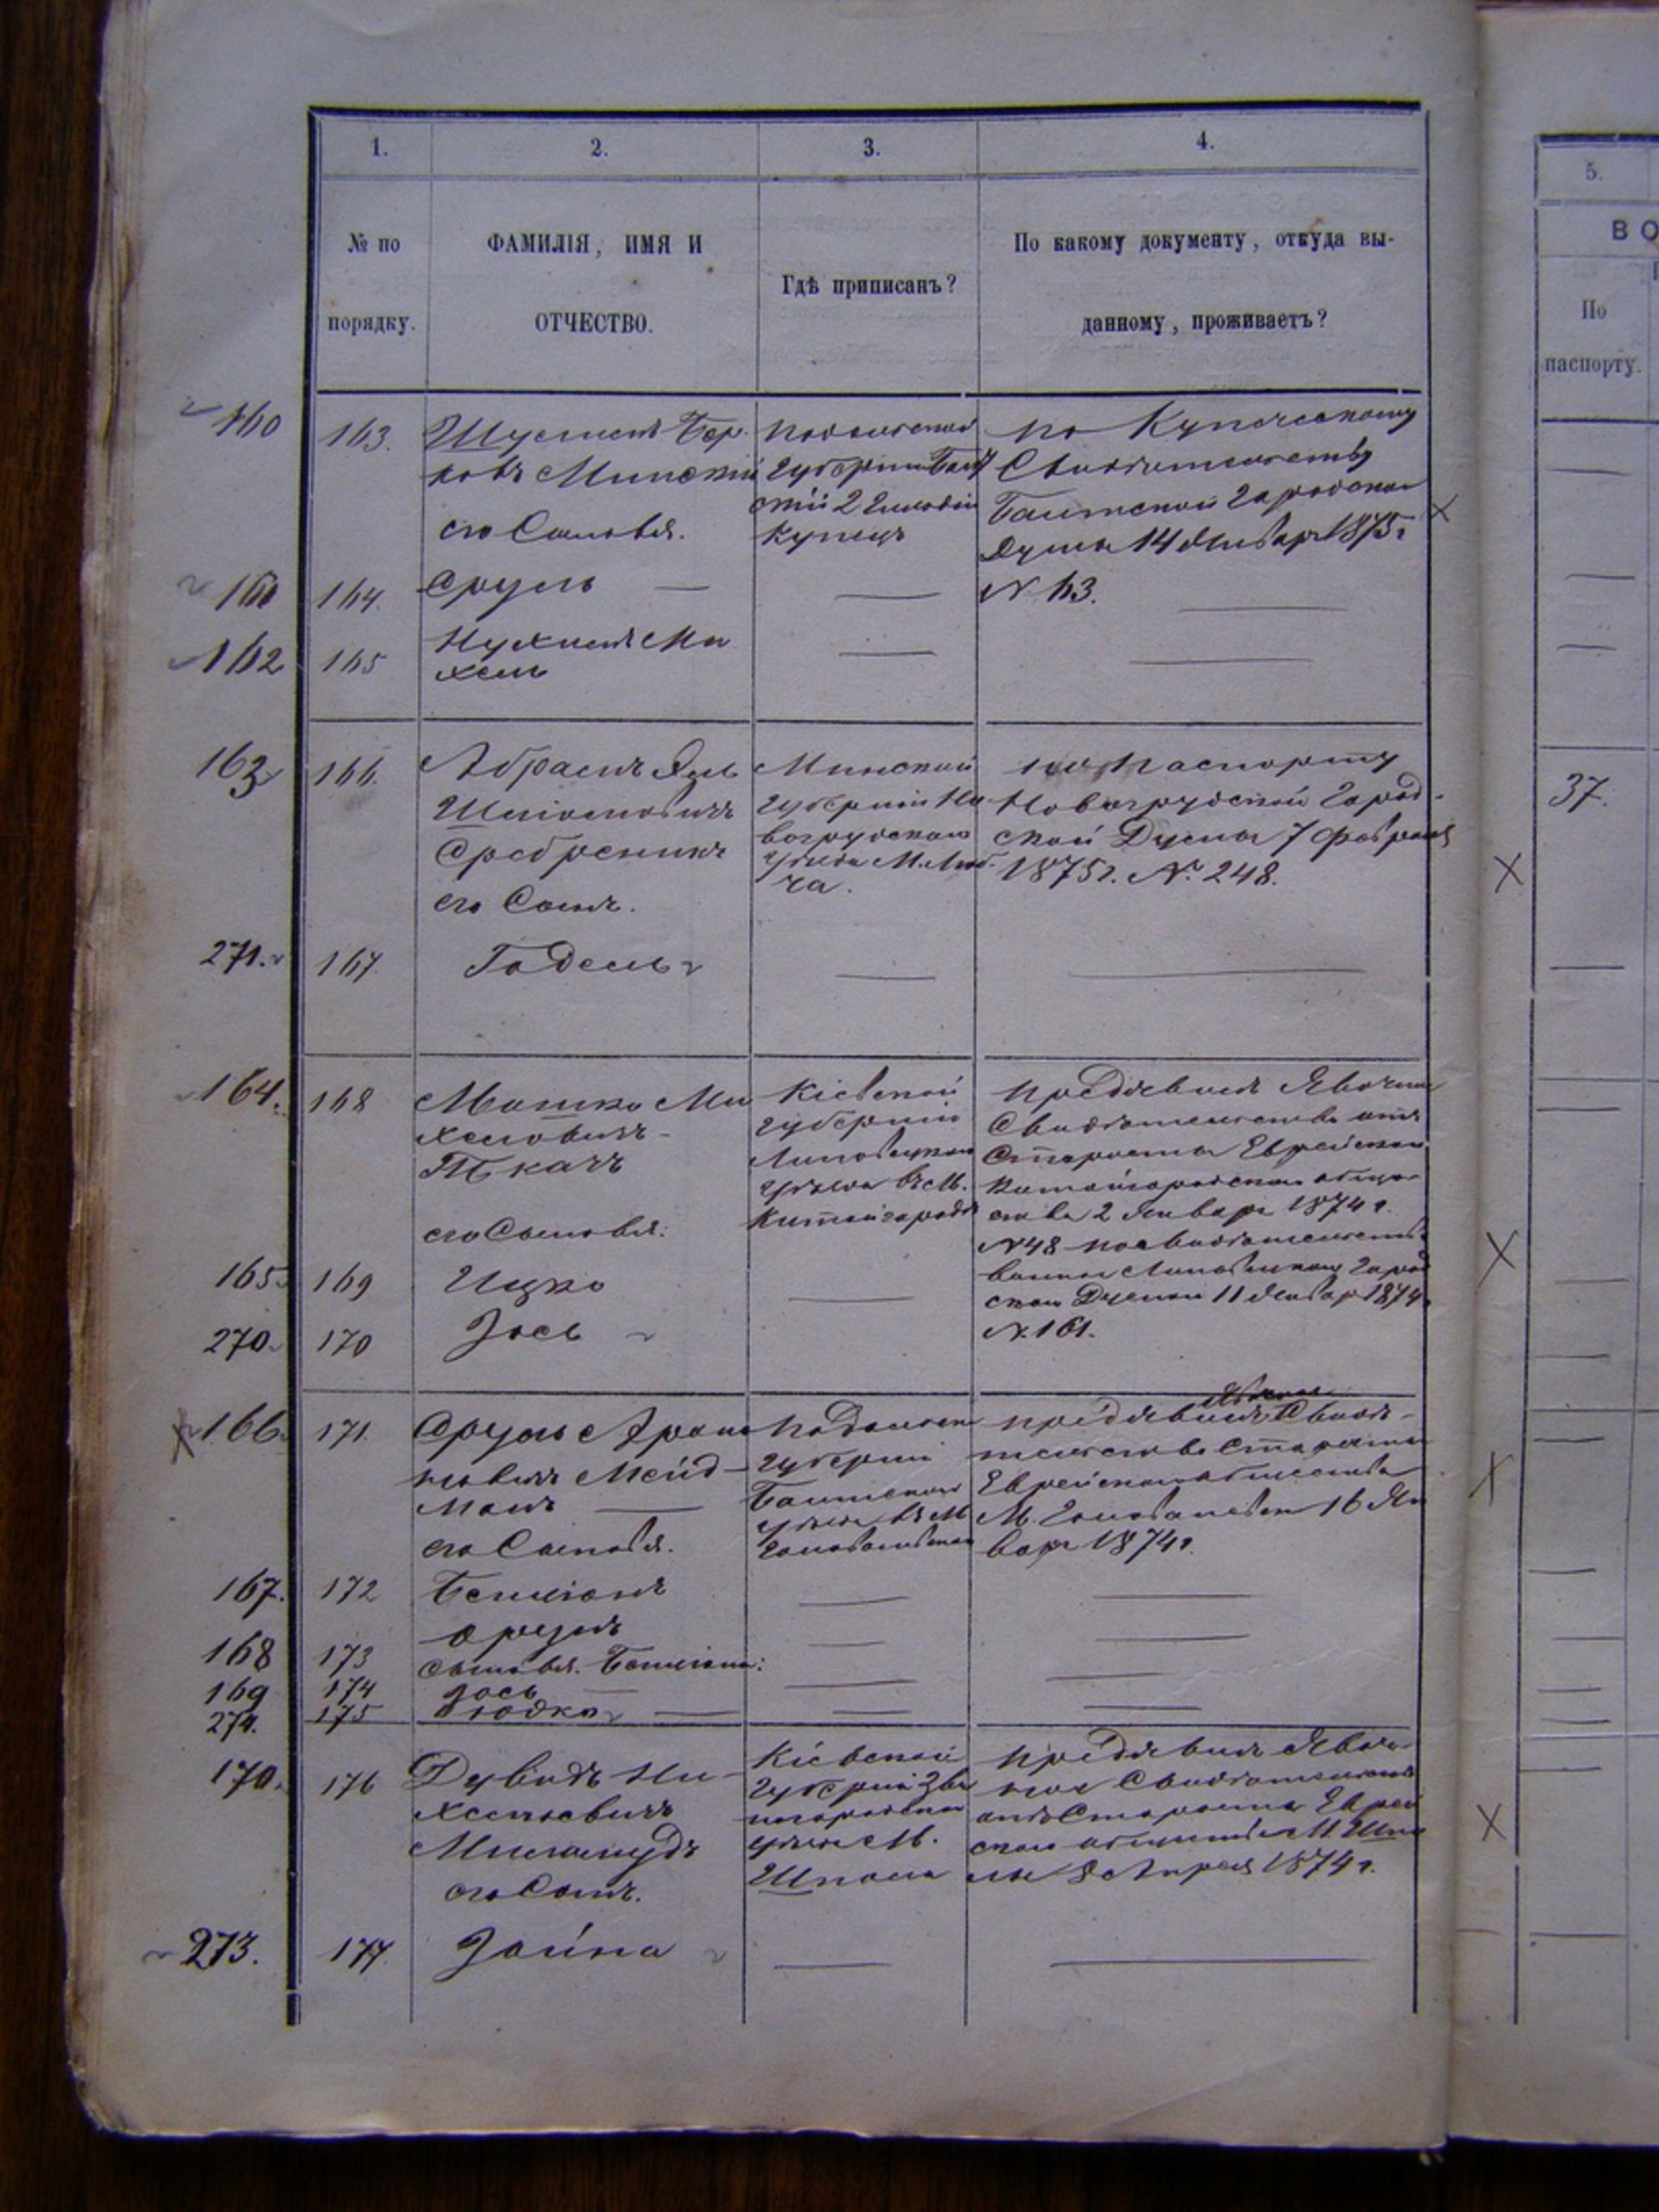 1.
2.
3.
4.
5.
№ по
порядку.
ФАМИЛІЯ, ИМЯ И
ОТЧЕСТВО.
Гдѣ приписанъ?
По какому документу, откуда вы-
данному, проживаетъ?
ВО
По
паспорту.
160
163.
Бер-
ковъ Минскій
его Сыновья.
Подольской
губерніи Балт
скій 2 Гильдіи
Купецъ
по Купеческому
Свидѣтельству
Балтской Городской
Думы 14 Декабря 1875 г
N 63.
164.
Сруль —
162
165
Нухимъ Ми
хель
163
166.
Абрамъ
Шліомовичъ
Сребреникъ
его Сынъ.
Минской
губерніи Но
вогрудскаго
уѣзда М. Люб-
ча.
по Паспорту
Новогрудской Город-
ской Думы 7 Февраля
1875 г. № 248.
37.
271.
167.
Годель
164.
168
Мошко Ми
хелевичъ
Ткачъ
его Сыновья:
Кіевской
губерніи
Липовецкаго
уѣзда въ М.
Китайгородѣ
предъявилъ Явочное
Свидѣтельство отъ
Старосты Еврейскаго
Китайгородскаго обще-
ства 2 Января 1874 г.
N 48
Липовецкою Город
скою Думою 11 1874
N. 161.
165
169
Ицко
270
170
Іось
166
171.
Сруль Арон
овичъ Мейд-
манъ —
его Сыновья.
Подольской
губерніи
Балтскаго
уѣзда въ М
Голованевскѣ
Явочное
предъявилъ Свидѣ-
тельство Старосты
Еврейскаго общества
М. Голованевска 16 Ян
варя 1874 г.
167.
172
Бенціонъ
168
173
Сруль
сыновья Бенціона:
169
174
Іось —
274.
175
Юдко —
170
176
Дувидъ Ми-
хелевичъ
его Сынъ.
Кіевской
губерніи Зве
нигородскаго
уѣзда М.
Шпола
предъявилъ Явоч-
ное Свидѣтельство
отъ Старосты Еврей
скаго общества М. Шпо
лы 8 Апреля 1874 г.
273.
177.
Іойна